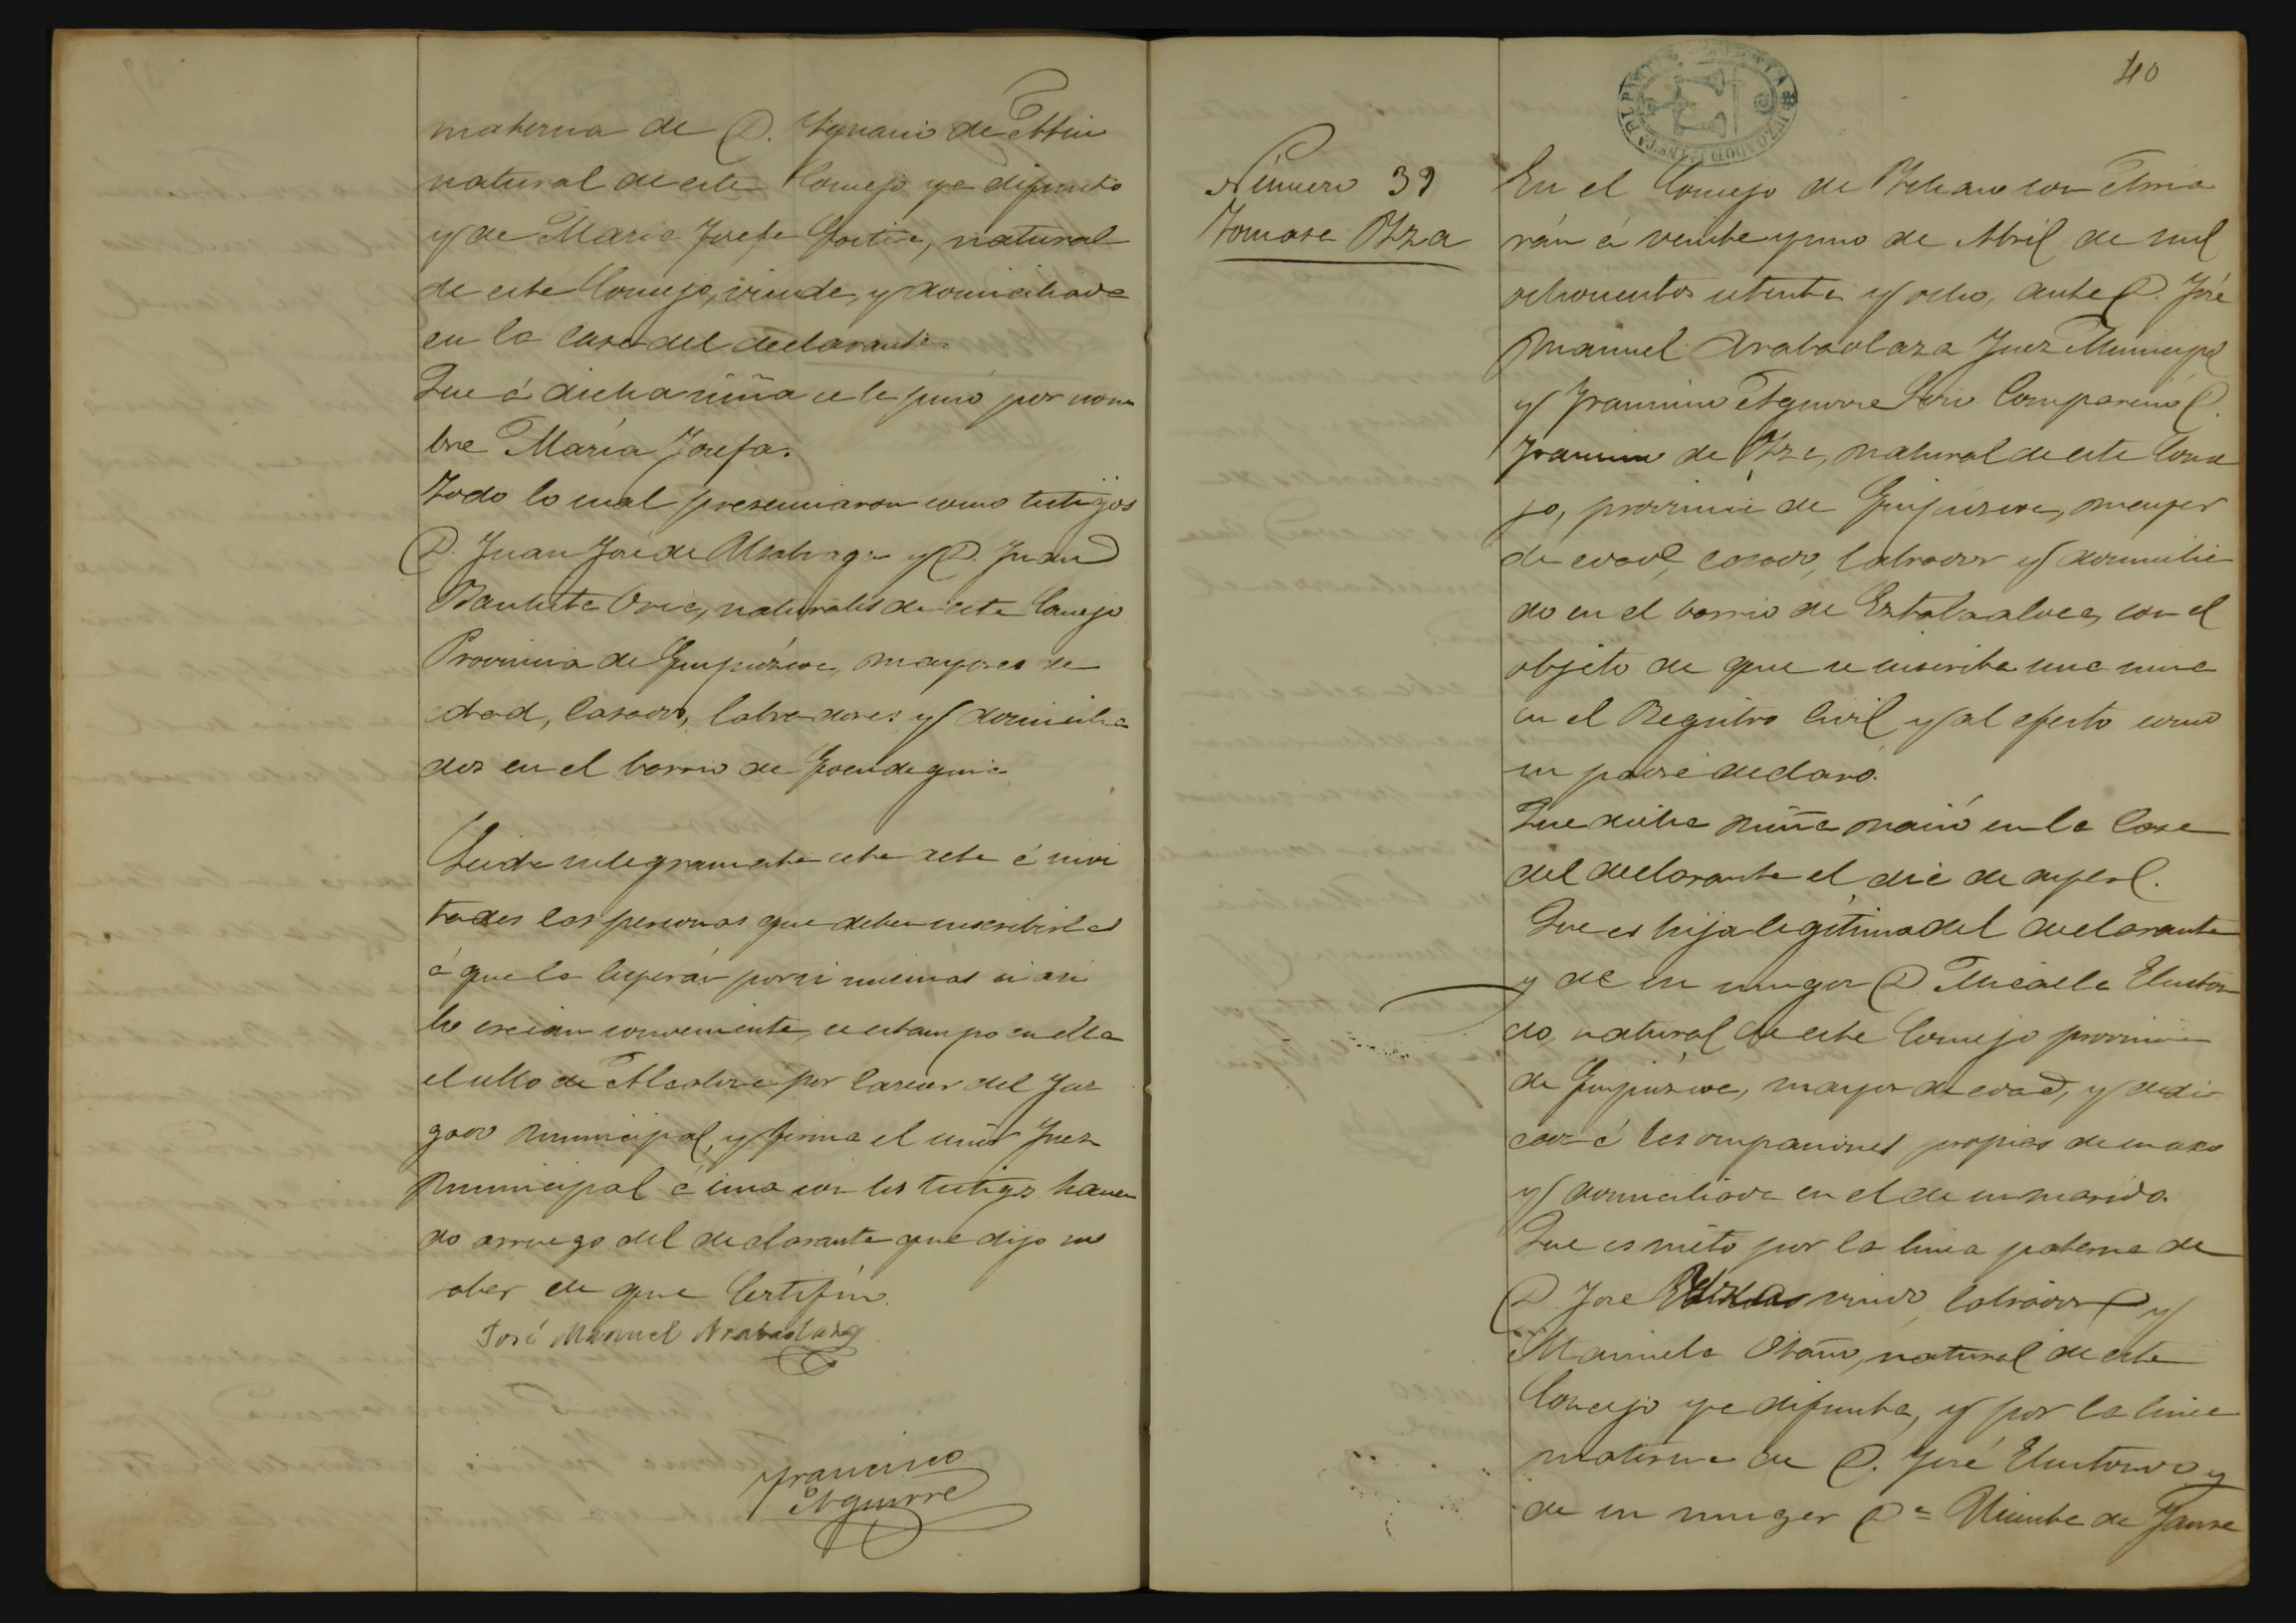 materna de D. Ygnacio de
natural de este Concejo ya difunto
y de Maria Josefa natural
de este Concejo, viuda, y domiciliada
en la casa del declarante.
Que á dicha niña se le puso por nom
bre María Josefa.
Todo lo cual presenciaron como testigos
D. Juan José de y D. Juan
Bautista Oria, naturales de este Concejo
Provincia de Guipúzcoa, mayores de
edad, casados, labradores y domicilia
dos en el barrio de Goendeguia
Leida integramente esta acta é invi
tadas las personas que deben suscribirla
á que la leyerán por si mismas si asi
lo creian conveniente, se estampo en ella
el sello de Alcaldia por carecer del Juz
gado municipal, y firma el señor Juez
municipal é una con los testigos hacien
do arruego del declarante que dijo no
saber de que Certifico.
José Manuel Arabaolaza
Francisco
Aguirre
40
Número 39
Tomasa Olza
En el Concejo de Beizama
á veinte y uno de Abril de mil
ochocientos setenta y ocho, ante D. José
Manuel Arabaolaza Juez Municipal
y Francisco Aguirre Srio. Comparecio D.
Francisco de natural de este Conce
jo, provincia de Guipúzcoa, mayor
de edad, casado, labrador y domicilia
do en el barrio de con el
objeto de que se inscriba una niña
en el Registro Civil y al efecto como
su padre declaró.
Que dicha niña nació en la casa
del declarante el dia de ayer.
Que es hija legítima del declarante
y de su muger D. Micaela Eluston
do, natural de este Concejo provincia
de Guipúzcoa, mayor de edad, y dedi
cada á las ocupaciones propias de su sexo
y domiciliada en el de su marido.
Que es nieto por la linea paterna de
D. José viudo, labrador y
Manuela Otaño, natural de este
Concejo ya difunta, y por la linea
materna de D. José Elustondo y
de su muger D.ª Vicenta de